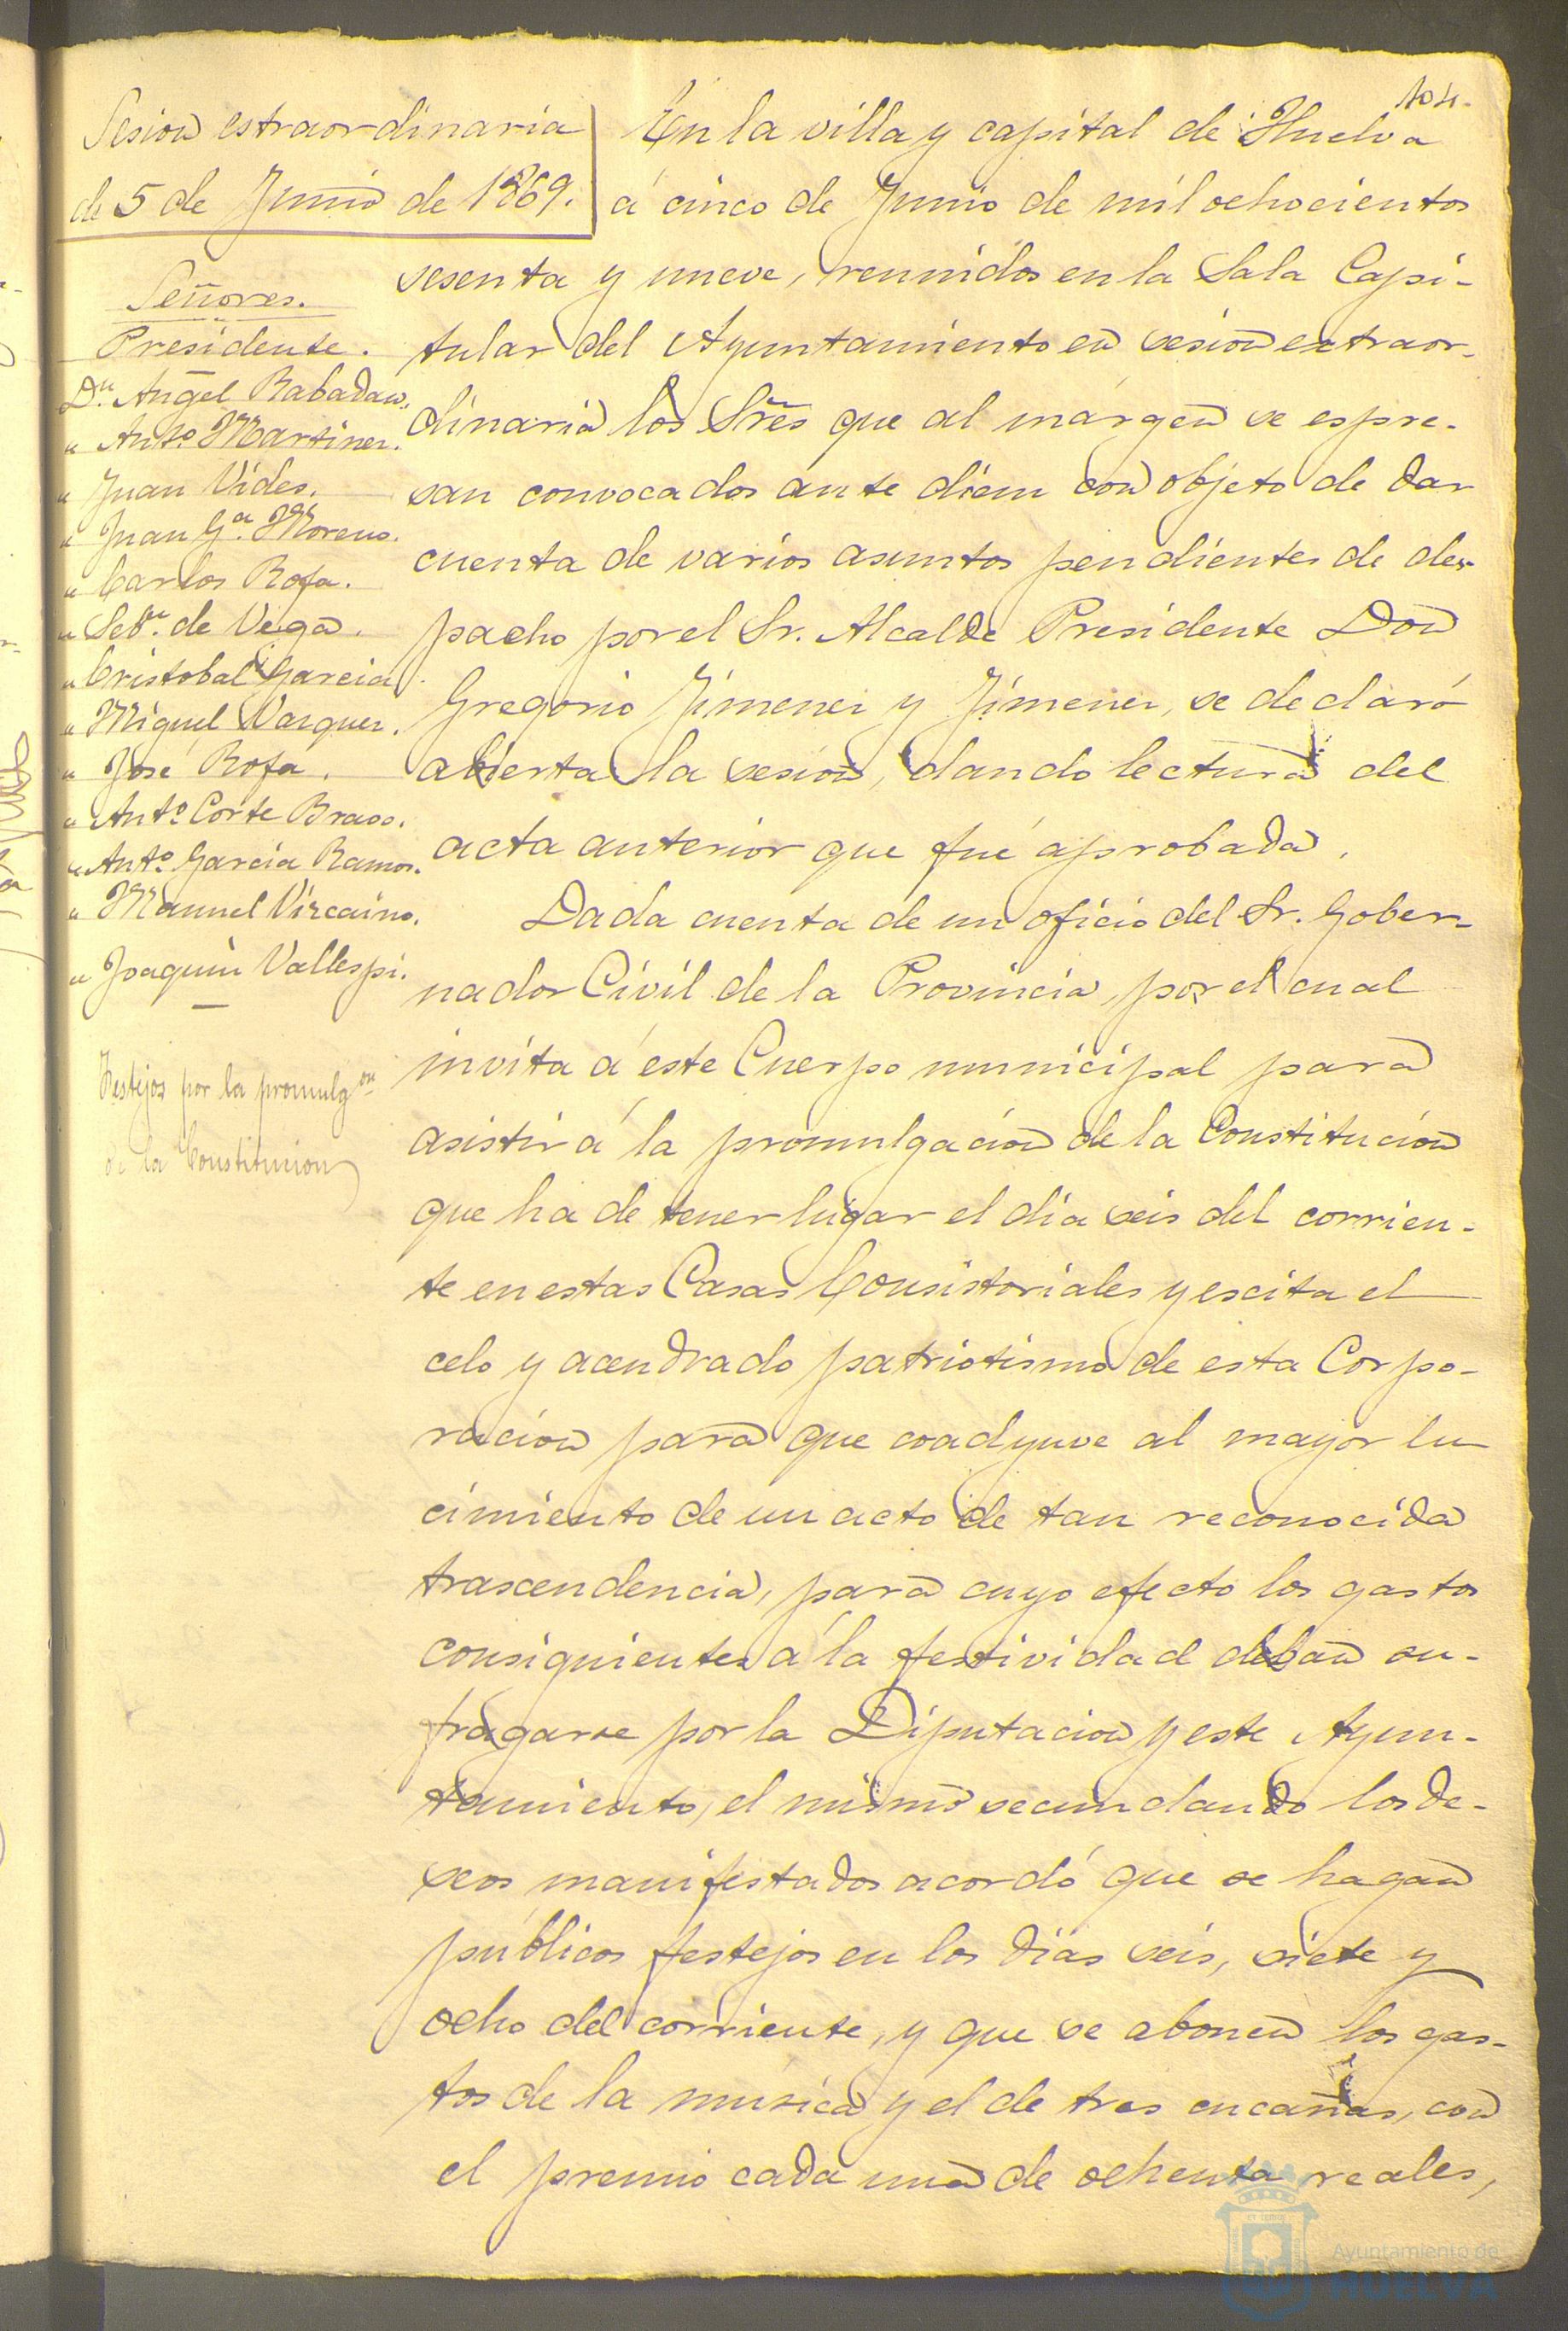 104.
Sesion estraordinaria
de 5 de Junio de 1869.
Señores.
Presidente.
Dn. Angel Rabadan.
" Anto. Martinez.
" Juan Vides.
" Juan Ga. Moreno.
" Carlos Rofa.
" Sebn. de Vega.
" Cristobal Garcia.
" Miguel Vazquez.
" José Rofa.
" Anto. Corte Bravo.
" Anto. Garcia Ramos.
" Manuel Vizcaino.
" Joaquin Vallespi.
Festejos por la promulgon
de la Constitucion
En la villa y capital de Huelva
á cinco de Junio de mil ochocientos
sesenta y nueve, reunidos en la Sala Capi-
tular del Ayuntamiento en sesion extraor-
dinaria los Sres que al márgen se espre-
san convocados ante diem con objeto de dar
cuenta de varios asuntos pendientes de des-
pacho por el Sr. Alcalde Presidente Don
Gregorio Jimenez y Jimenez, se declaró
abierta la sesion, dando lectura del
acta anterior que fué aprobada.
Dada cuenta de un oficio del Sr. Gober-
nador Civil de la Provincia, por el cual
invita á este Cuerpo municipal para
asistir á la promulgacion de la Constitucion
que ha de tener lugar el dia seis del corrien-
te en estas Casas Consistoriales y escita el
celo y acendrado patriotismo de esta Corpo-
racion para que coadyuve al mayor lu
cimiento de un acto de tan reconocida
trascendencia, para cuyo efecto los gastos
consiguientes á la festividad deban su-
fragarse por la Diputacion y este Ayun-
tamiento, el mismo secundando los de-
seos manifestados acordó que se hagan
públicos festejos en los dias seis, siete y
ocho del corriente, y que se abonen los gas-
tos de la música y el de tres cucañas, con
el premio cada una de ochenta reales,
Ayuntamiento de
HUELVA